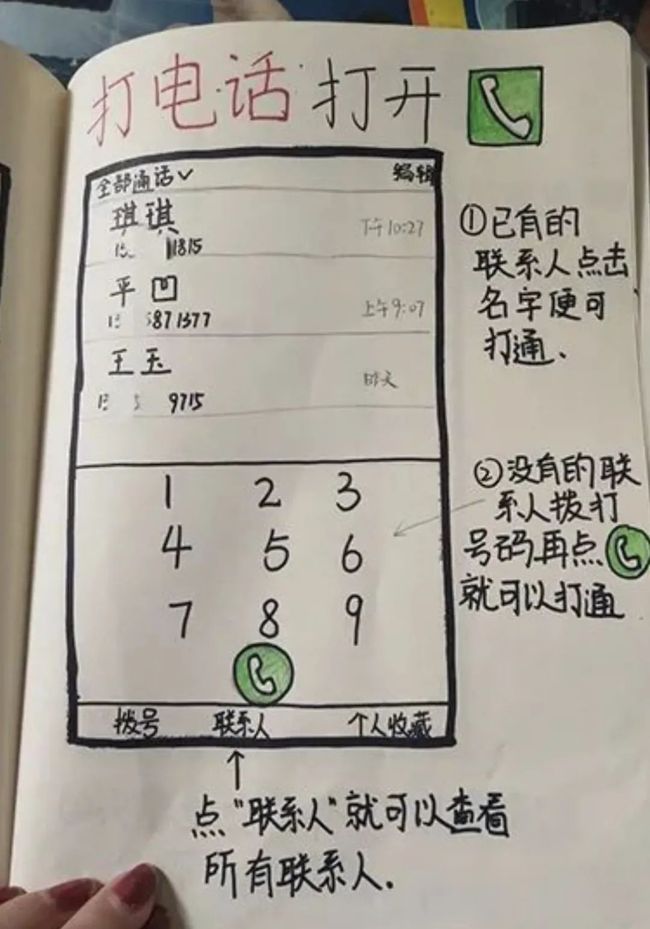 打电话 打开
全部通话 编辑
琪琪 下午10:27
1815
平凹 上午9:07
5871377
王玉 昨天
9715
①已有的
联系人点击
名字便可
打通、
1 2 3
4 5 6
7 8 9
②没有的联
系人拨打
号码再点
就可以打通
拨号 联系人 个人收藏
点"联系人"就可以查看
所有联系人.